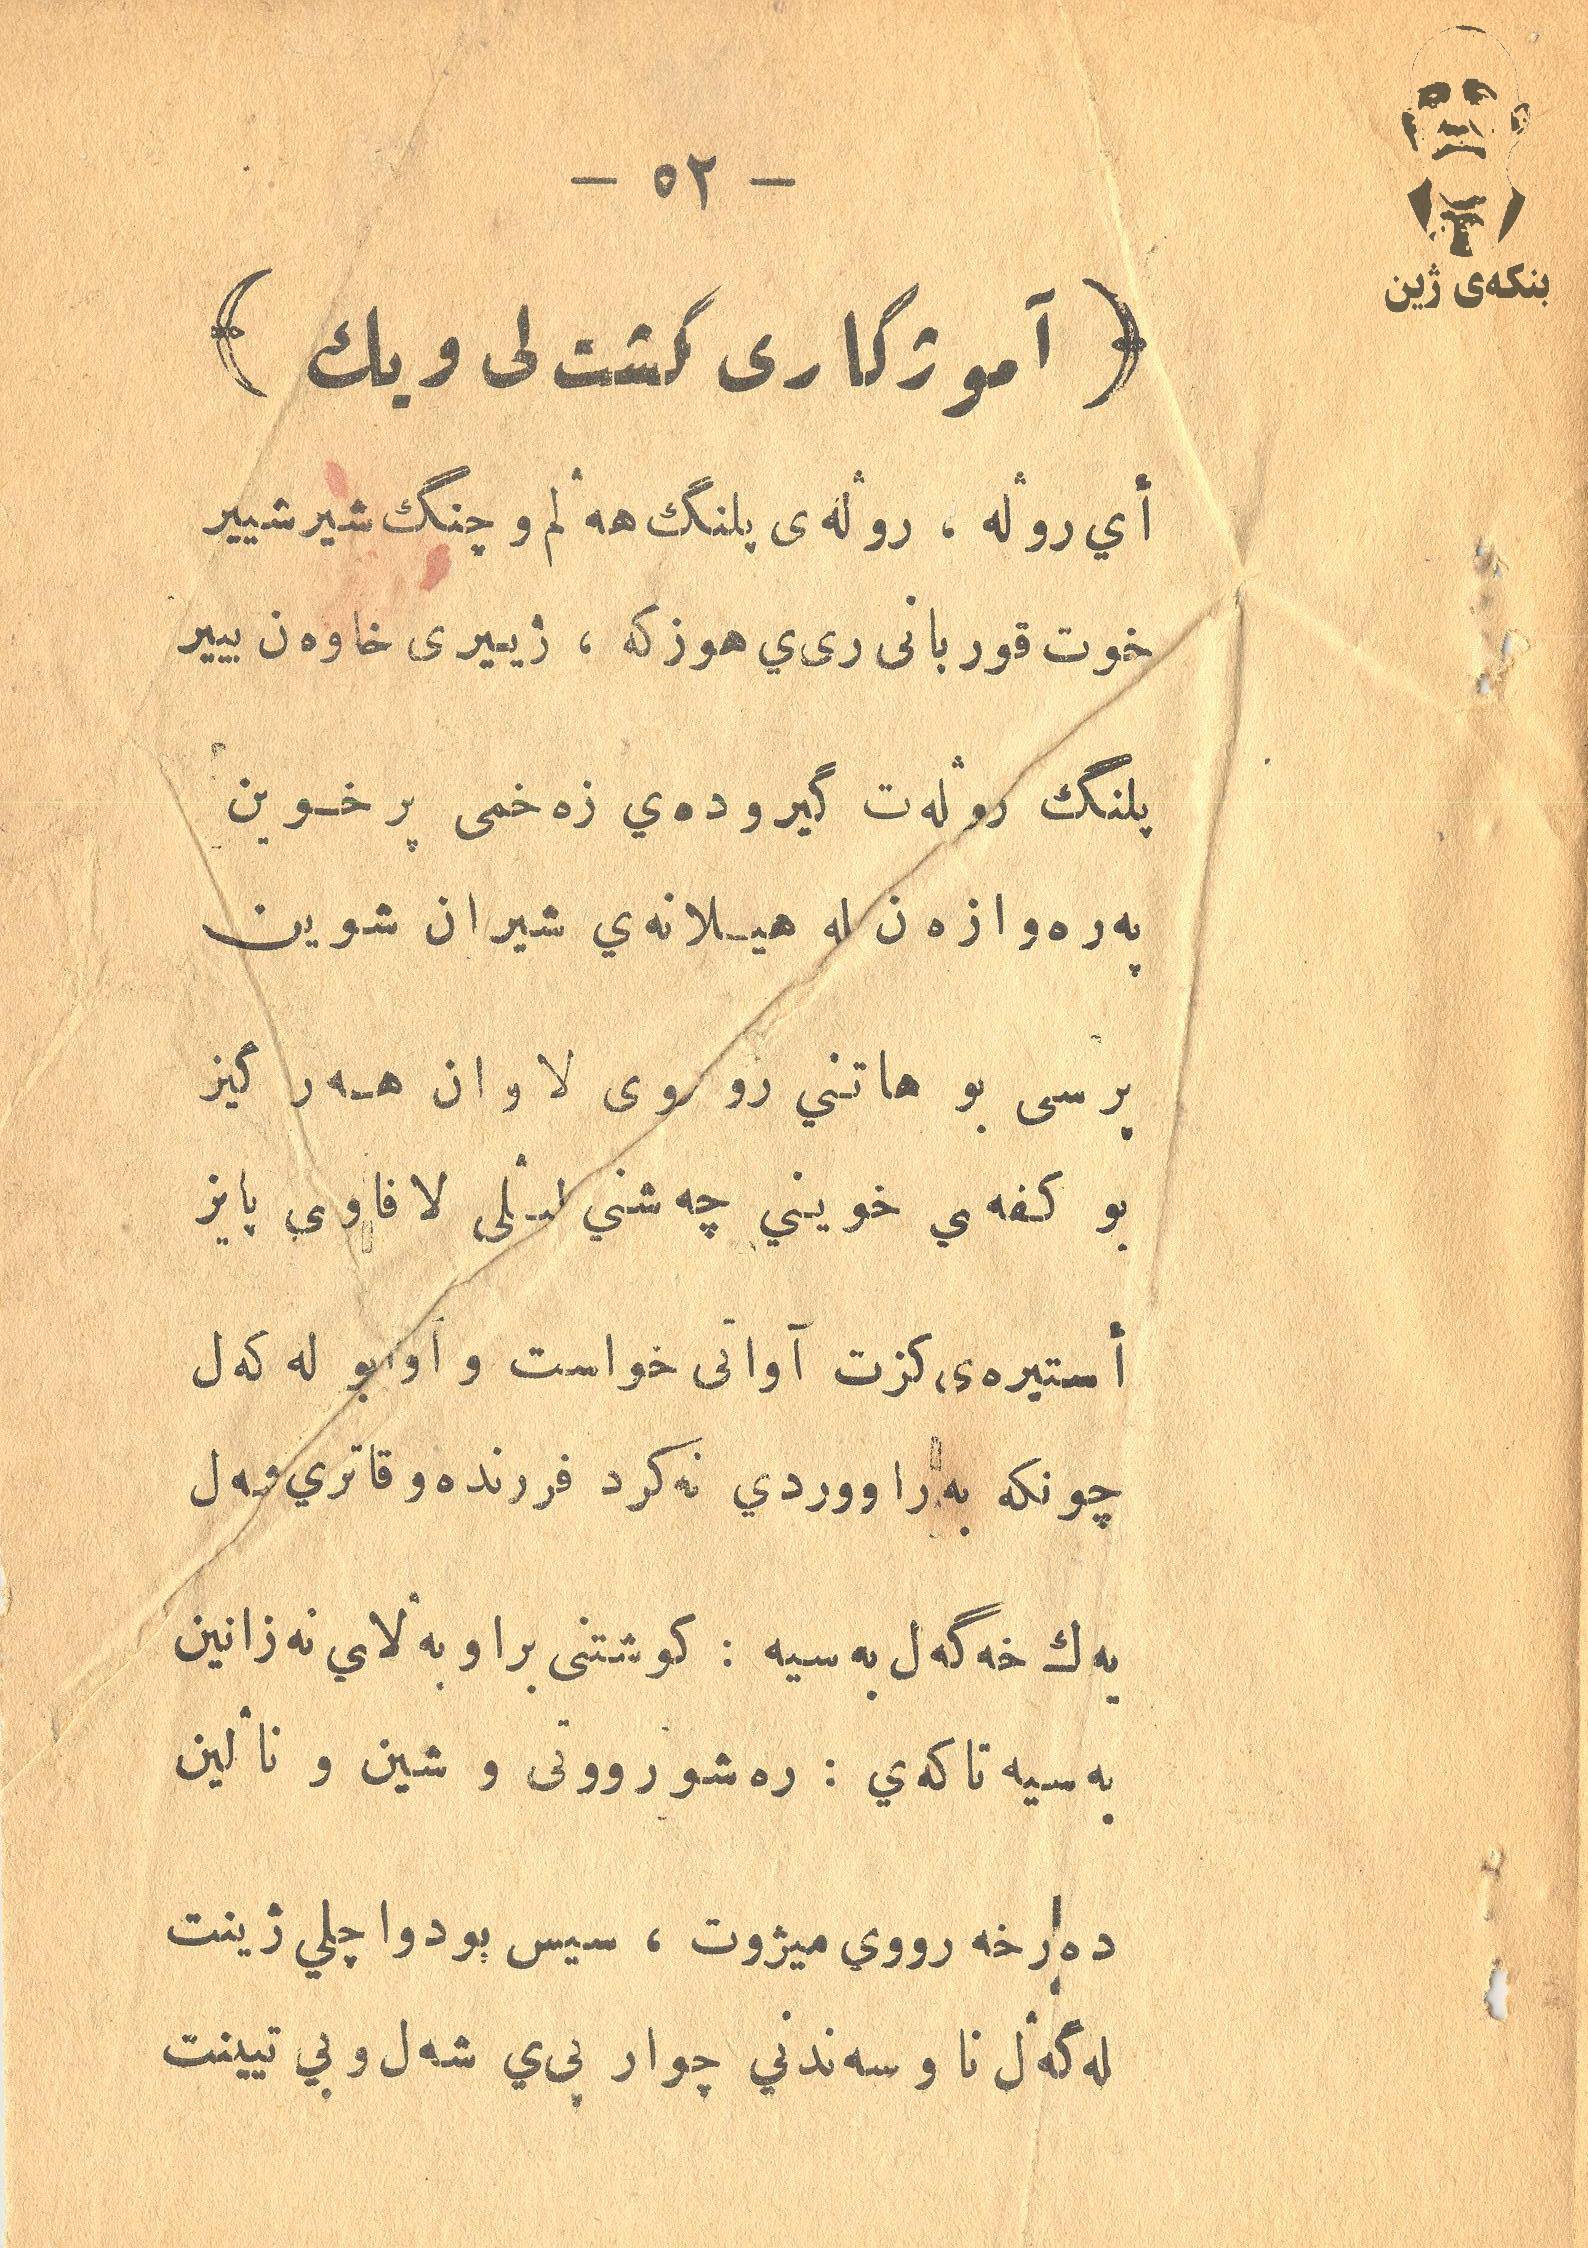 — ٥٢ —
بنکەی ژین
﴿ آموژگاری گشت لی ویك ﴾
أي روٚله ، روٚلەی پلنگ هەٚلم و چنگ شیر شییر
خوت قوربانی ری‌ي هوزکە ، ژییری خاوەن بییر
پلنگ روٚلەت گیرودەي زەخمی پر خوین
پەرەوازەن لە هیـلانەي شیران شوین
پرسی بو هاتني رو وی لاوان هـەر گیز
بو کفەي خویني چەشني لیٚلی لافاوي پایز
أستیرەی کزت آواتی خواست و آوابو لە کەل
چونکە بەراووردي نەکرد فررندە و قاتري مەل
یەك خەگەل بەسیە : کوشتنی برا و بەٚلاي نەزانین
بەسیە تاکەي : رەشو رووتی و شین و ناٚلین
دەرخە رووي میژوت ، سیس بو دوا چلي ژینت
لەگەٚل نا و سەندني چوار پی‌ي شەل و بي تیینت